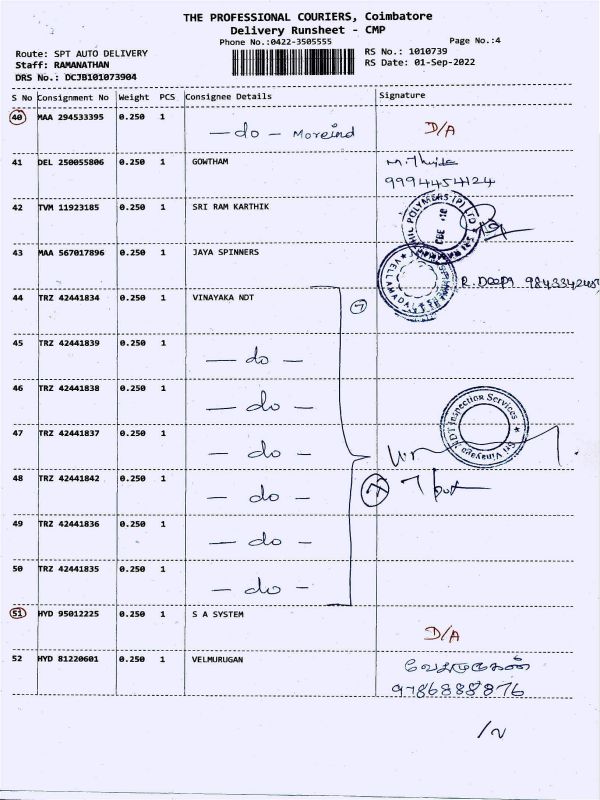 THE PROFESSIONAL COURIERS, Coimbatore
Delivery Runsheet - CMP
Phone No.:0422-3505555 Page No.:4
Route: SPT AUTO DELIVERY RS No.: 1010739
Staff: RAMANATHAN RS Date: 01-Sep-2022
DRS No.: DCJB101073904
S No Consignment No Weight PCS Consignee Details Signature
40 MAA 294533395 0.250 1 — do — Moreind D/A
41 DEL 250055806 0.250 1 GOWTHAM
9994454124
42 TVM 11923185 0.250 1 SRI RAM KARTHIK
43 MAA 567017896 0.250 1 JAYA SPINNERS
44 TRZ 42441834 0.250 1 VINAYAKA NDT 7
45 TRZ 42441839 0.250 1 — do —
46 TRZ 42441838 0.250 1 — do —
47 TRZ 42441837 0.250 1 — do —
48 TRZ 42441842 0.250 1 — do —
49 TRZ 42441836 0.250 1 — do —
50 TRZ 42441835 0.250 1 — do —
51 HYD 95012225 0.250 1 S A SYSTEM D/A
52 HYD 81220601 0.250 1 VELMURUGAN வேலமுருகன்
9786888876